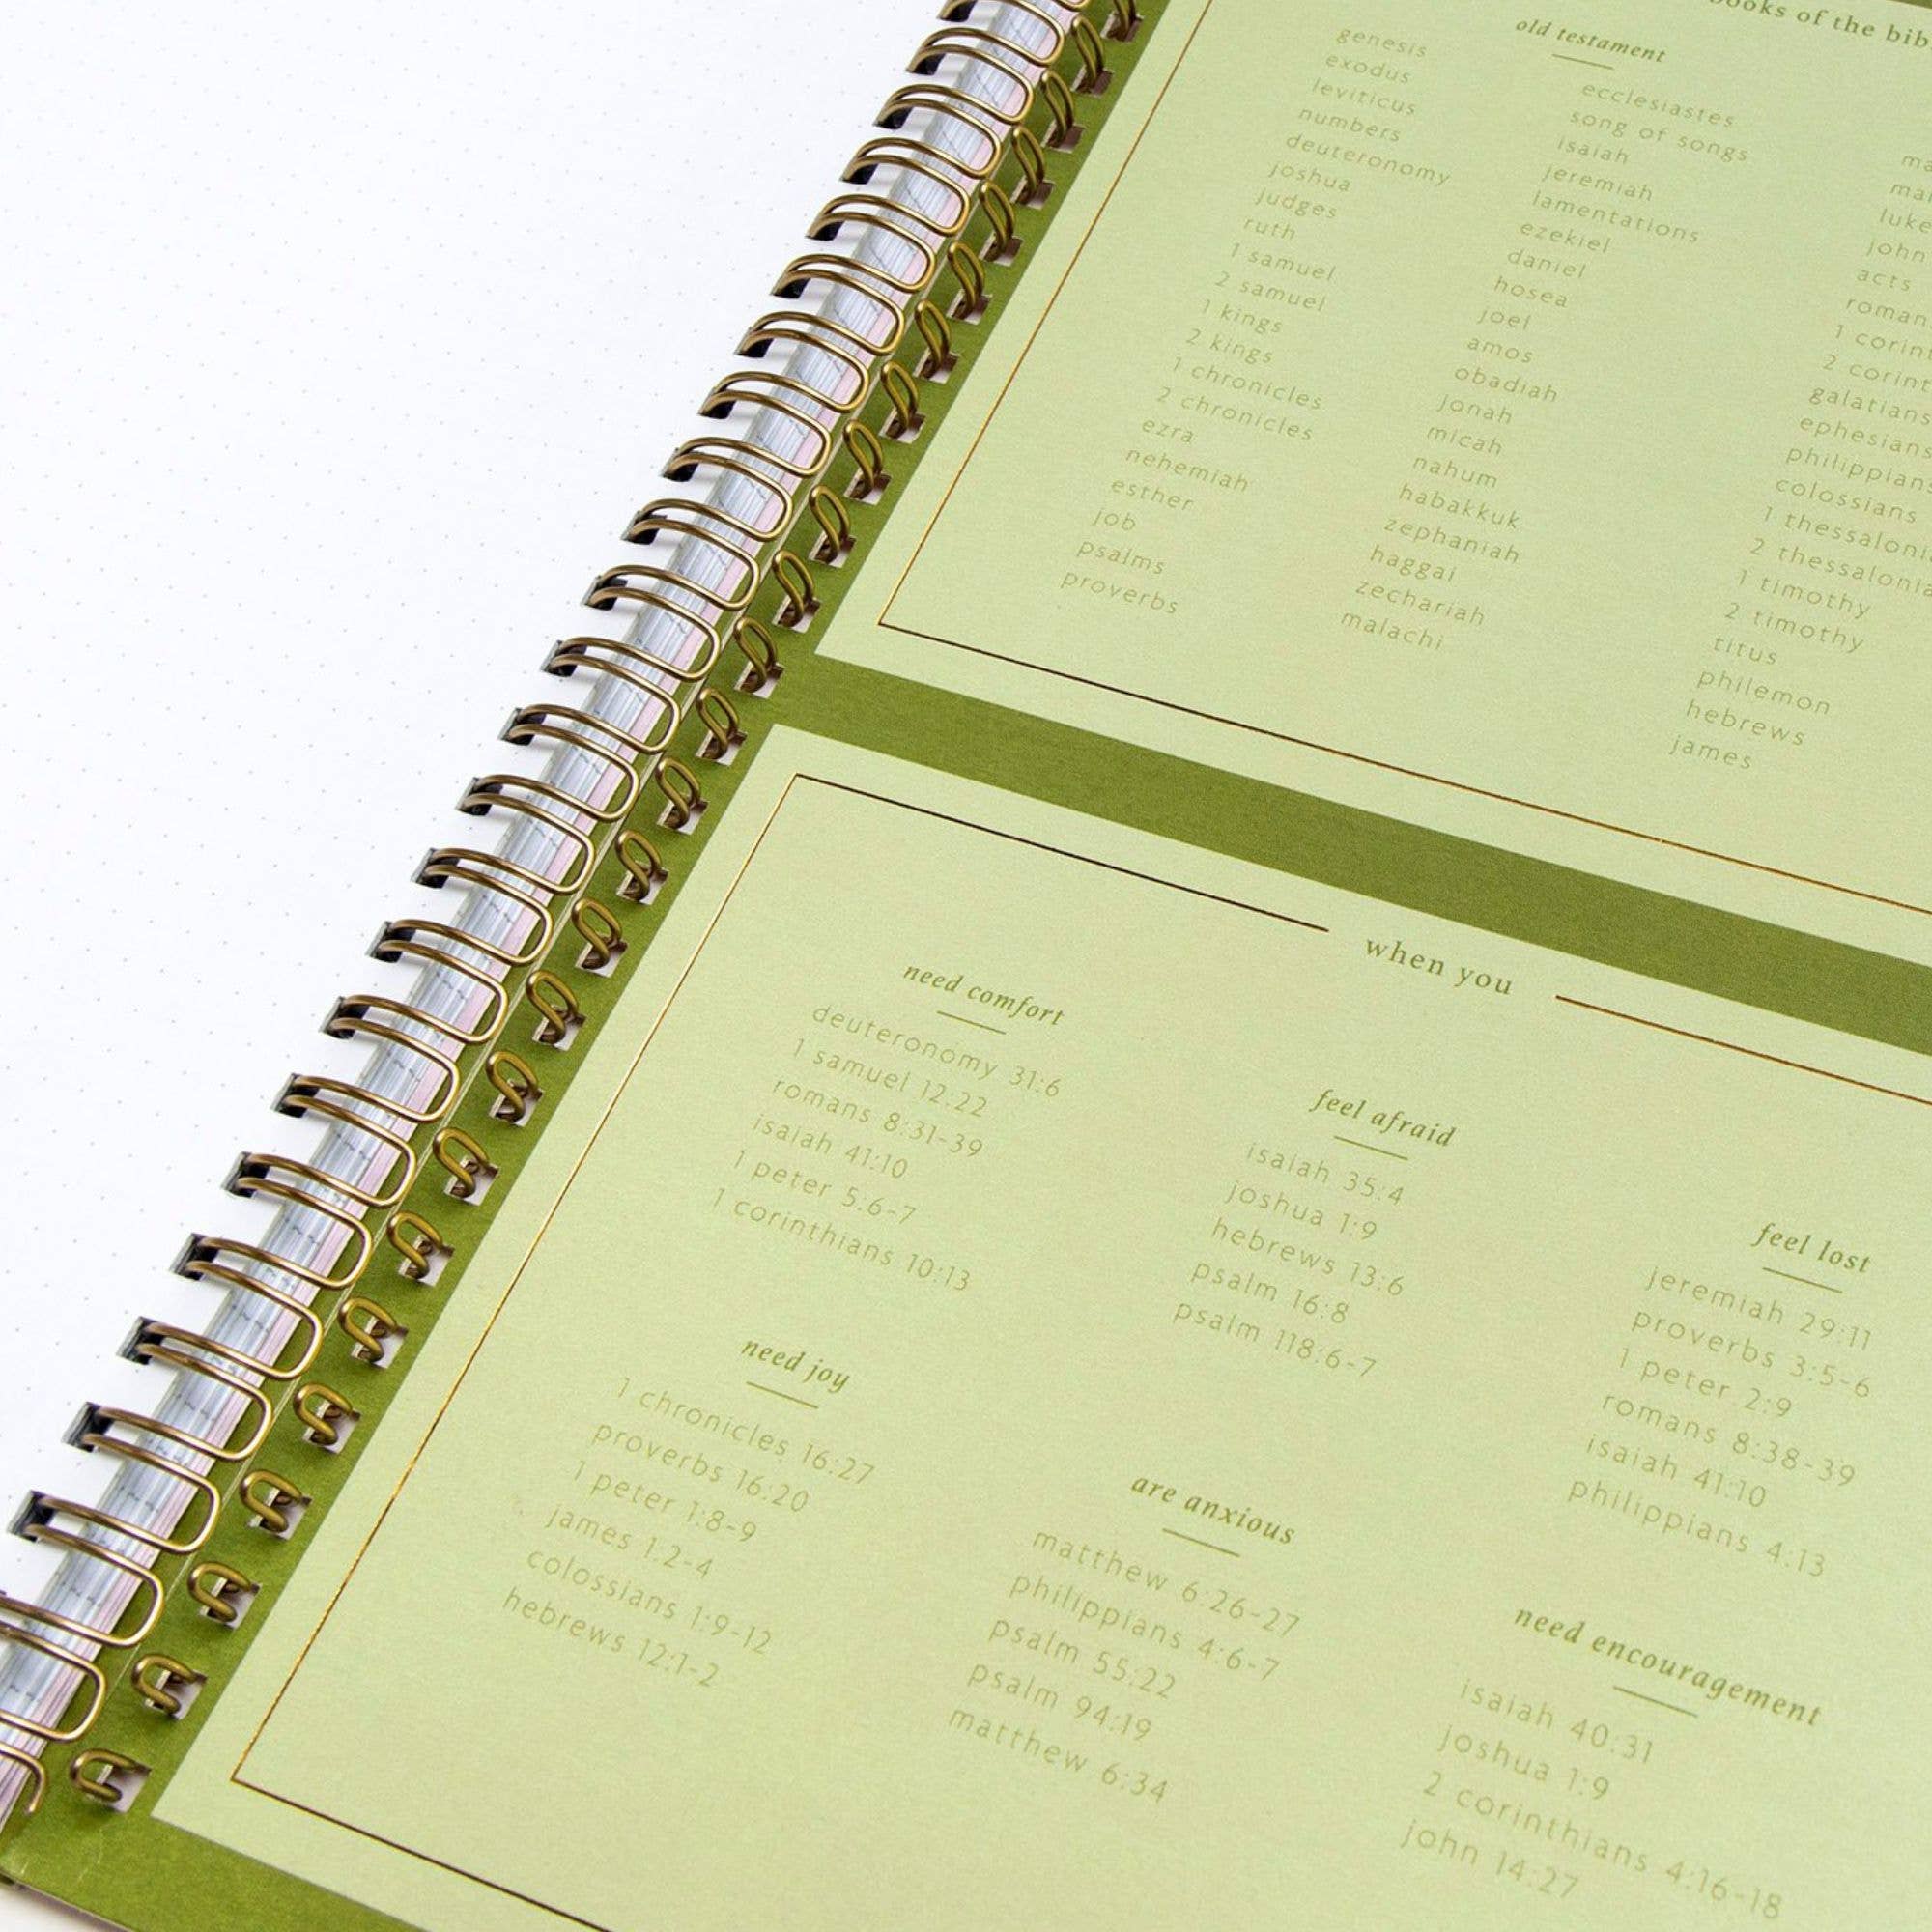 books of the
old testament
genesis
exodus
leviticus
numbers
deuteronomy
joshua
judges
ruth
1 samuel
2 samuel
1 kings
2 kings
1 chronicles
2 chronicles
ezra
nehemiah
esther
job
psalms
proverbs
ecclesiastes
song of songs
isaiah
jeremiah
lamentations
ezekiel
daniel
hosea
joel
amos
obadiah
jonah
micah
nahum
habakkuk
zephaniah
haggai
zechariah
malachi
luke
john
acts
1
2
galatians
ephesians
philippians
colossians
1
2
1 timothy
2 timothy
titus
philemon
hebrews
james
when you
need comfort
deuteronomy 31:6
1 samuel 12:22
romans 8:31-39
isaiah 41:10
1 peter 5:6-7
1 corinthians 10:13
feel afraid
isaiah 35:4
joshua 1:9
hebrews 13:6
psalm 16:8
psalm 118:6-7
feel lost
jeremiah 29:11
proverbs 3:5-6
1 peter 2:9
romans 8:38-39
isaiah 41:10
philippians 4:13
need joy
1 chronicles 16:27
proverbs 16:20
1 peter 1:8-9
james 1:2-4
colossians 1:9-12
hebrews 12:1-2
are anxious
matthew 6:26-27
philippians 4:6-7
psalm 55:22
psalm 94:19
matthew 6:34
need encouragement
isaiah 40:31
joshua 1:9
2 corinthians 4:16-18
john 14:27